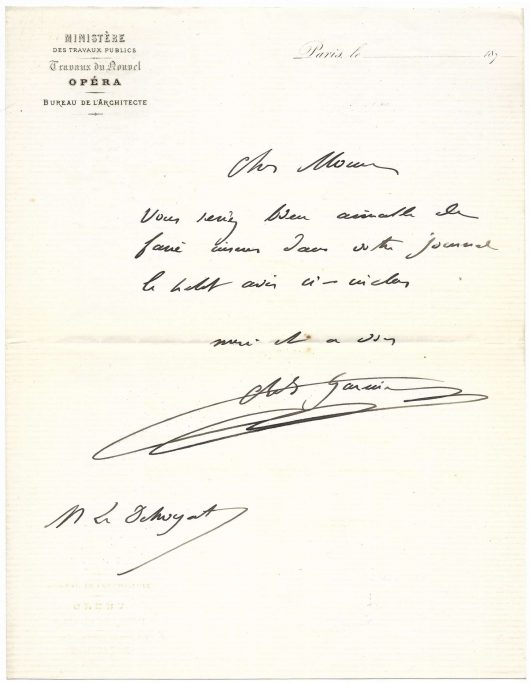 MINISTÈRE
DES TRAVAUX PUBLICS
Travaux du Nouvel
OPÉRA
BUREAU DE L'ARCHITECTE
Paris, le 187
Cher Monsieur
Vous seriez bien aimable de
faire insérer dans votre journal
le petit avis ci-inclus
merci et a vous
Ch. Garnier
M Le